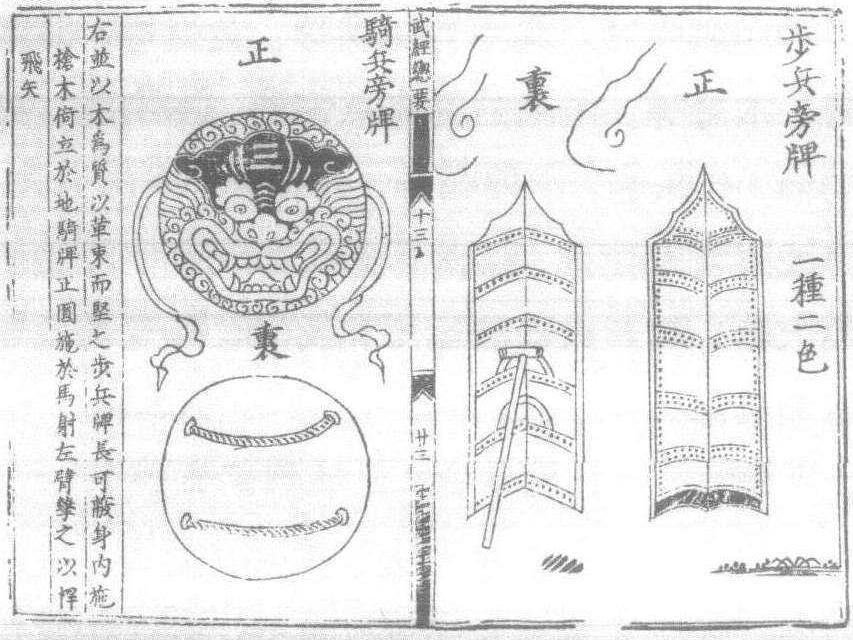 步兵旁牌 一種二色
正
裏
武經總要
十三
廿三
騎兵旁牌
正
裏
右並以木爲質以革束而堅之步兵牌長可蔽身內施
槍木倚立於地騎牌正圓施於馬射左臂繫之以捍
飛矢